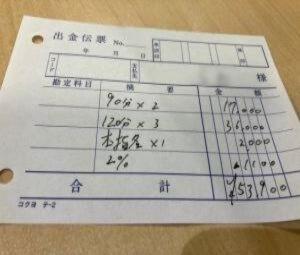 出金伝票 No.
年 月 日
コード
支払先
様
勘定科目 摘要 金額
90分×2 17,000
120分×3 36,000
本指名×1 2,000
2% ▲1,100
合計 ¥53,900
コクヨ テ-2